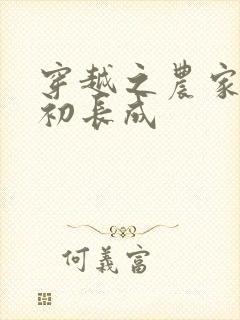 穿越之農家
初長成
何義富